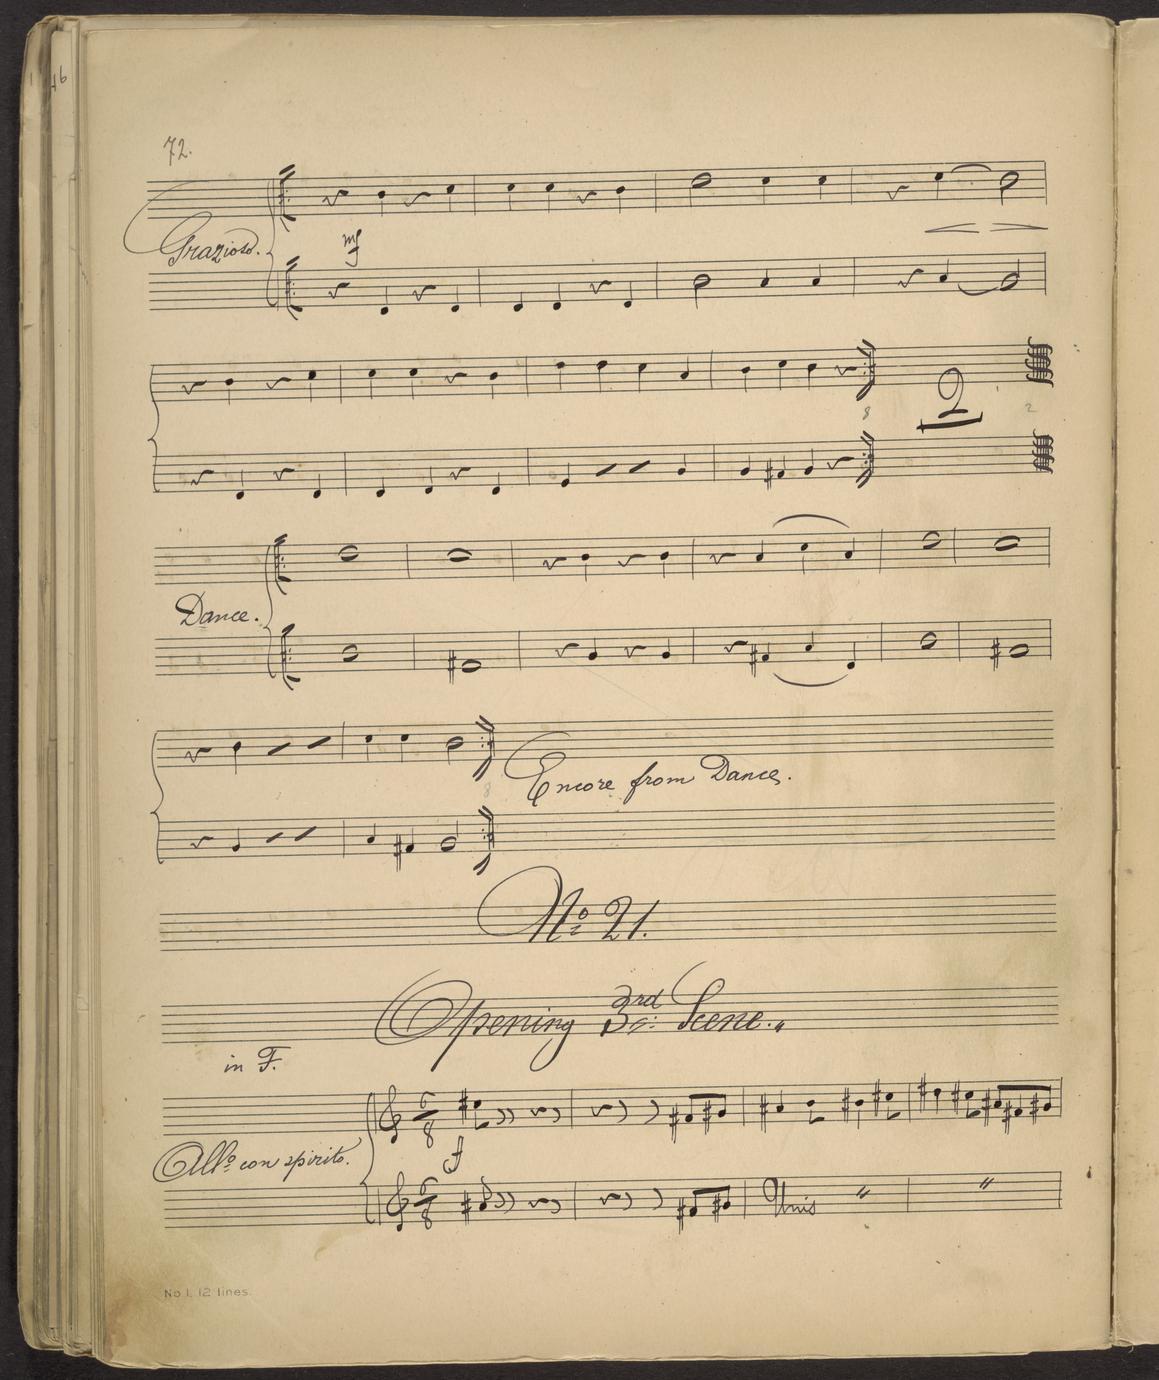 72.
Grazioso.
mf
8
2
2
Dance.
8
Encore from Dance.
No. 21.
Opening 3rd Scene.
in F.
Allo. con spirito.
6
8
f
6
8
Unis " "
No 1. 12 lines.